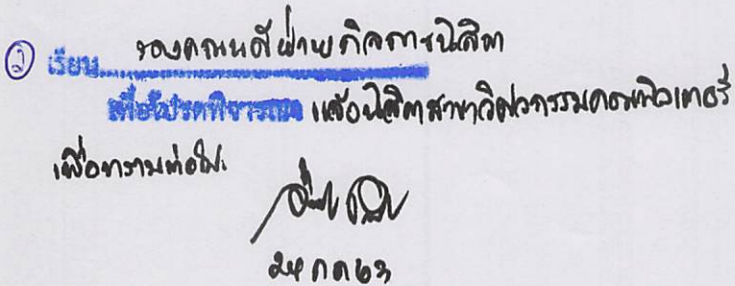 ② เรียน รองคณบดีฝ่ายกิจการนิสิต
เพื่อโปรดพิจารณา แจ้งนิสิตสาขาวิศวกรรมคอมพิวเตอร์
เพื่อทราบต่อไป
กค 63